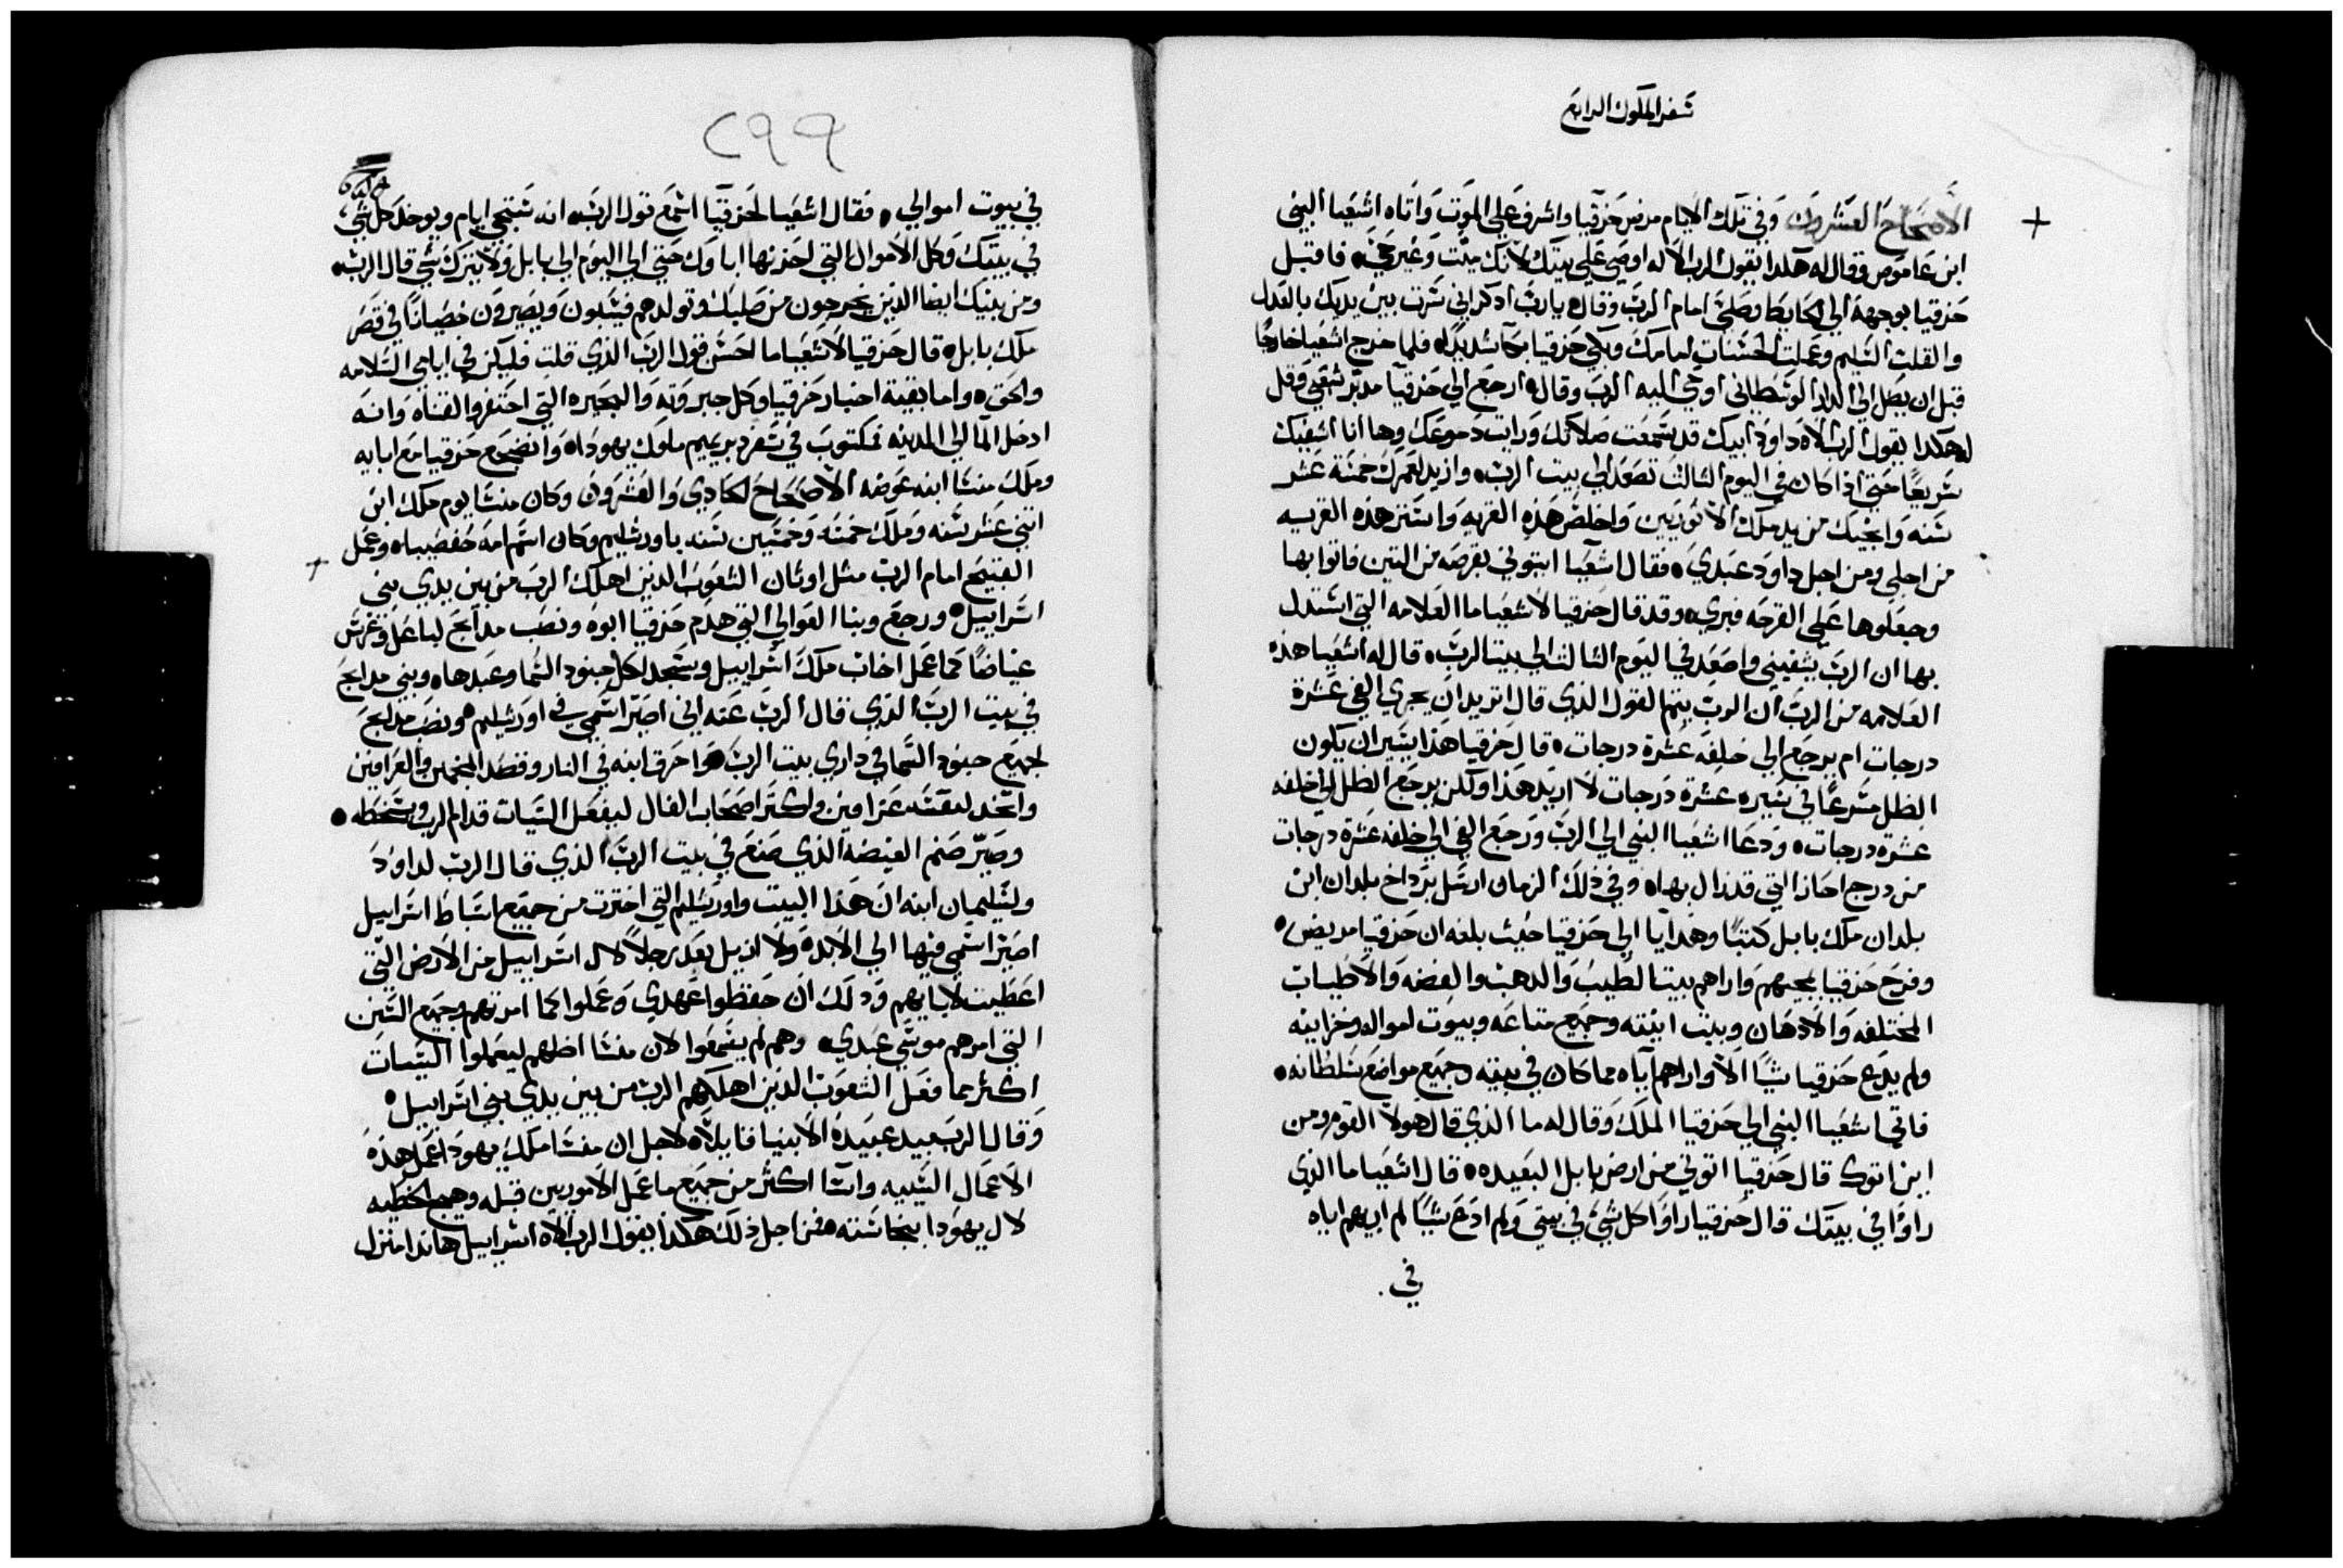 سفر الملوك الرابع
الاصحاح العشرون وفي تلك الايام مرض حزقيا واشرف علي الموت واتاه اشعيا النبي
ابن عاموص وقال له هكذا يقول الرب الاله اوصي علي بيتك لانك ميت وغير حي فاقبل
حزقيا بوجهه الي الحايط وصلي امام الرب وقال يارب ادكر اني سرت بين يديك بالعدل
والقلب السليم وعملت الحسنات امامك وبكي حزقيا بكا شديدا فلما خرج اشعيا خارجا
قبل ان يصل الي الدار الوسطاني اوحي اليه الرب وقال ارجع الي حزقيا مدبر شعبي وقل
له هكدا يقول الرب الاه داود ابيك قد سمعت صلاتك ورايت دموعك وها انا اشفيك
سريعا حتي اذا كان في اليوم الثالث تصعد الي بيت الرب وازيد لعمرك خمسة عشر
سنه وانجيك من يد ملك الاتوريين واخلص هذه القريه واستر هذه القريه
من اجلي ومن اجل داود عبدي فقال اشعيا ايتوني بقرصه من التين فاتوا بها
وجعلوها علي القرحه فبري وقد قال حزقيا لاشعيا ما العلامه التي استدل
بها ان الرب يشفيني واصعد في اليوم الثالث الي بيت الرب قال له اشعيا هذه
العلامه من الرب ان الرب يتم القول الذي قال اتريد ان يجري الفي عشرة
درجات ام يرجع الي خلفه عشرة درجات قال حزقيا هذا يسير ان يكون
الظل مسرعا في سيره عشرة درجات لا اريد هذا ولكن يرجع الظل الي خلفه
عشرة درجات ودعا اشعيا النبي الي الرب ورجع الفي الي خلفه عشرة درجات
من درج احاز التي قد نزل بها وفي ذلك الزمان ارسل برداخ بلدان ابن
بلدان ملك بابل كتبا وهدايا الي حزقيا حيث بلغه ان حزقيا مريض
وفرح حزقيا بمجيهم واراهم بيت الطيب والدهب والفضه والاطياب
المختلفه والادهان وبيت انيته وجميع متاعه وبيوت امواله وخزاينه
ولم يدع حزقيا شيا الا واراهم آياه مما كان في بيته وجميع مواضع سلطانه
فاتي اشعيا النبي الي حزقيا الملك وقال له ما الذي قال هولا القوم ومن
اين اتوك قال حزقيا اتوني من ارض بابل البعيده قال اشعيا ما الذي
راوا في بيتك قال حزقيا راوا كل شي في بيتي ولم ادع شيا لم اريهم اياه
في
٢٩٩
في بيوت اموالي فقال اشعيا لحزقيا اسمع قول الرب انه ستجي ايام ويوخد كل شي
في بيتك وكل الاموال التي اخزنها اباوك حتي الي اليوم الي بابل ولا يترك شي قال الرب
ومن بنيك ايضا الذين يخرجون من صلبك وتولدهم فيسبون ويصيرون خصيانا في قصر
ملك بابل قال حزقيا لاشعيا ما احسن قول الرب الذي قلت فليكن في ايامي السلامه
والحق واما بقية اخبار حزقيا وكل جبروته والبحيره التي احتفر والقناه وانه
ادخل الما الي المدينه مكتوب في سفر دبريميم ملوك يهودا وانضجع حزقيا مع ابايه
وملك منشا ابنه عوضه الاصحاح الحادي والعشرون وكان منشا يوم ملك ابن
اثني عشر سنه وملك خمسه وخمسين سنه باورشليم وكان اسم امه حفصيباه وعمل
القبيح امام الرب مثل اوثان الشعوب الذين اهلك الرب من بين يدي بني
اسراييل ورجع وبنا العوالي التي هدم حزقيا ابوه ونصب مدابح لباعل وغرس
غياضا كما عمل اخاب ملك اسراييل وسجد لكل جنود السما وعبدها وبني مدابح
في بيت الرب الذي قال الرب عنه اني اصير اسمي في اورشليم ونصب مدابح
لجميع جنود السما في داري بيت الرب واحرق ابنه في النار وقصد المنجمين والعرافين
واتخد لنفسه عرافين واكثر اصحاب الفال ليفعل السيات قدام الرب ويسخطه
وصير صنم الغيضه الذي صنع في بيت الرب الذي قال الرب لداود
ولسليمان ابنه ان هذا البيت واورشليم التي اخترت من جميع اسباط اسراييل
اصير اسمي فيها الي الابد ولا ازيل بعد رجلا لال اسراييل من الارض التي
اعطيت لابايهم ودلك ان حفظوا عهدي وعملوا كما امرتهم وجميع السنن
التي امرهم موسي عبدي وهم لم يسمعوا لان منشا اضلهم ليعملوا السيات
اكثر مما فعل الشعوب الذين اهلكهم الرب من بين يدي بني اسراييل
وقال الرب بيد عبيده الانبيا قايلا لاجل ان منشا ملك يهودا عمل هذه
الاعمال السيه واسا اكثر من جميع ما عمل الاموريين قبله وهيج الخطيه
لال يهودا بنجاسته فمن اجل ذلك هكذا يقول الرب الاه اسراييل هانذا منزل